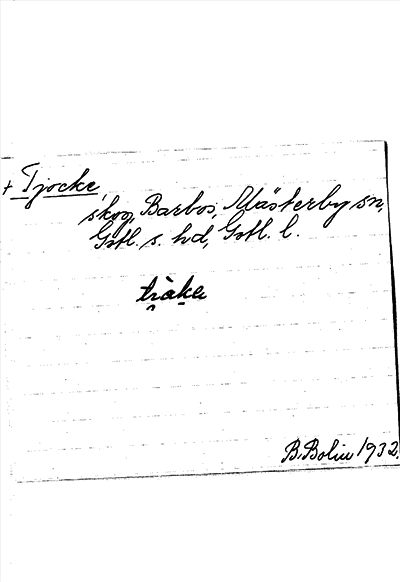 + Tjocke
skog, Barbos, Mästerby sn,
Gotl. s. hd, Gotl. l.
B. Bolin 1932.